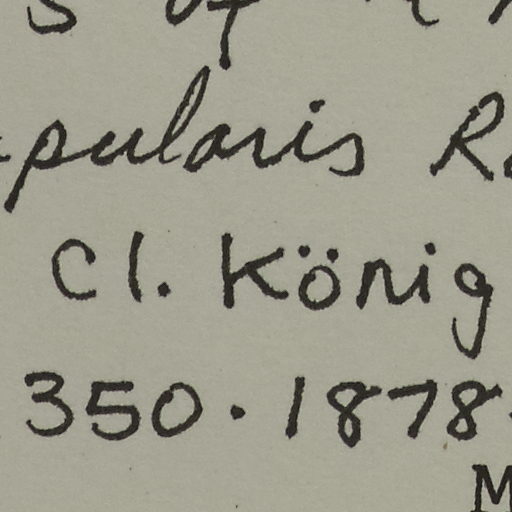 s of
pularis R
Cl. König
350. 1878.
M